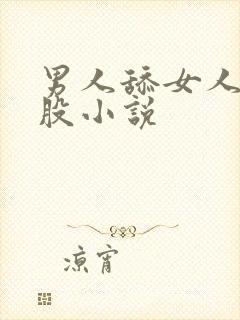 男人舔女人
股小说
凉宵